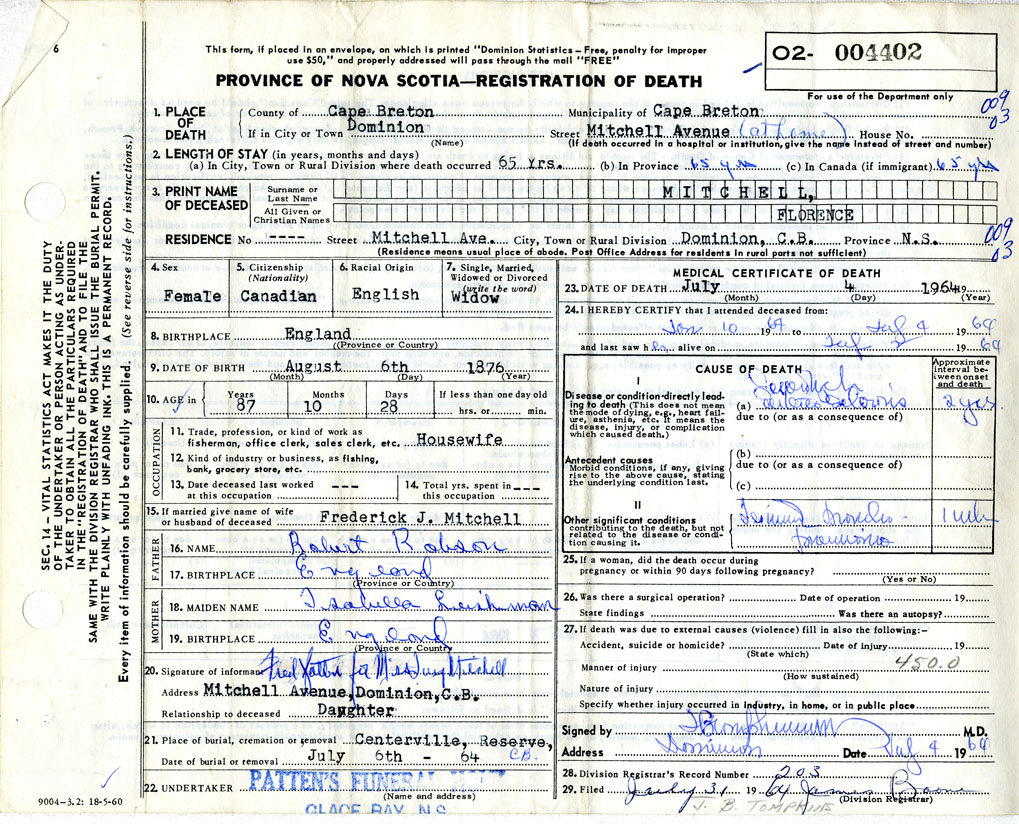 6
This form, if placed in an envelope, on which is printed "Dominion Statistics – Free, penalty for improper
use $50," and properly addressed will pass through the mail "FREE"
PROVINCE OF NOVA SCOTIA—REGISTRATION OF DEATH
02- 004402
For use of the Department only
009
03
1. PLACE OF DEATH
County of Cape Breton Municipality of Cape Breton
If in City or Town Dominion Street Mitchell Avenue (at home) House No.
(Name) (If death occurred in a hospital or institution, give the name instead of street and number)
2. LENGTH OF STAY (in years, months and days)
(a) In City, Town or Rural Division where death occurred 65 Yrs. (b) In Province 65 yrs (c) In Canada (if immigrant) 65 yrs
3. PRINT NAME OF DECEASED
Surname or Last Name MITCHELL,
All Given or Christian Names FLORENCE
RESIDENCE No ---- Street Mitchell Ave. City, Town or Rural Division Dominion, C.B. Province N.S.
009
03
(Residence means usual place of abode. Post Office Address for residents in rural parts not sufficient)
4. Sex
Female
5. Citizenship (Nationality)
Canadian
6. Racial Origin
English
7. Single, Married, Widowed or Divorced (write the word)
Widow
8. BIRTHPLACE England
(Province or Country)
9. DATE OF BIRTH August 6th 1876
(Month) (Day) (Year)
10. AGE in Years 87 Months 10 Days 28 If less than one day old
hrs. or min.
OCCUPATION
11. Trade, profession, or kind of work as
fisherman, office clerk, sales clerk, etc. Housewife
12. Kind of industry or business, as fishing,
bank, grocery store, etc.
13. Date deceased last worked
at this occupation ---
14. Total yrs. spent in
this occupation ---
15. If married give name of wife
or husband of deceased Frederick J. Mitchell
FATHER
16. NAME Robert Robson
17. BIRTHPLACE England
(Province or Country)
MOTHER
18. MAIDEN NAME Isabella Leishman
19. BIRTHPLACE England
(Province or Country)
20. Signature of informant
Address Mitchell Avenue, Dominion, C.B.
Relationship to deceased Daughter
21. Place of burial, cremation or removal Centerville, Reserve,
Date of burial or removal July 6th - 64 C.B.
22. UNDERTAKER PATTEN'S FUNERAL
(Name and address)
GLACE BAY, N.S.
9004–3.2: 18-5-60
MEDICAL CERTIFICATE OF DEATH
23. DATE OF DEATH July 4 1964 19
(Month) (Day) (Year)
24. I HEREBY CERTIFY that I attended deceased from:
Jan 10 1964 to July 4 1964
and last saw her alive on July 2 1964
CAUSE OF DEATH
Approximate interval between onset and death
I
Disease or condition directly leading to death (This does not mean
the mode of dying, e.g., heart failure, asthenia, etc. It means the
disease, injury, or complication
which caused death.)
(a) 2 yrs.
due to (or as a consequence of)
Antecedent causes
Morbid conditions, if any, giving
rise to the above cause, stating
the underlying condition last.
(b)
due to (or as a consequence of)
(c)
II
Other significant conditions
contributing to the death, but not
related to the disease or condition causing it.
Terminal Broncho-
pneumonia
25. If a woman, did the death occur during
pregnancy or within 90 days following pregnancy?
(Yes or No)
26. Was there a surgical operation? Date of operation 19
State findings Was there an autopsy?
27. If death was due to external causes (violence) fill in also the following:–
Accident, suicide or homicide? Date of injury 19
(State which)
450.0
Manner of injury
(How sustained)
Nature of injury
Specify whether injury occurred in industry, in home, or in public place
Signed by M.D.
Address Dominion Date July 4 1964
28. Division Registrar's Record Number 203
29. Filed July 31 1964 James Boone
(Division Registrar)
J. B. TOMPKINS
SEC. 14 – VITAL STATISTICS ACT MAKES IT THE DUTY
OF THE UNDERTAKER OR PERSON ACTING AS UNDER-
TAKER TO OBTAIN ALL THE PARTICULARS REQUIRED
IN THE "REGISTRATION OF DEATH" AND TO FILE THE
SAME WITH THE DIVISION REGISTRAR WHO SHALL ISSUE THE BURIAL PERMIT.
WRITE PLAINLY WITH UNFADING INK. THIS IS A PERMANENT RECORD.
Every item of information should be carefully supplied. (See reverse side for instructions.)